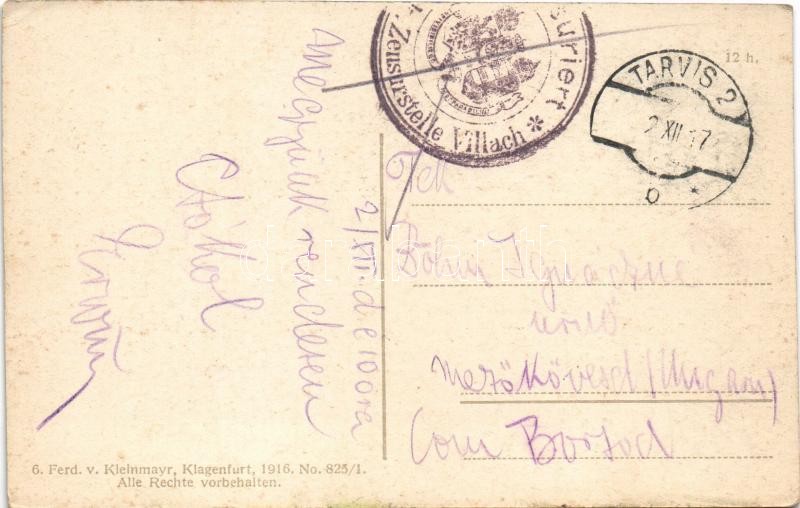 suriert
Zensurstelle Villach *
12 h.
TARVIS 2
2 XII 17
b *
2/XII. d e 10 óra
Megyünk rendesen
Csókol
Ervin
Bohm Ignáczné
úrnő
Mezőkövesd (Ungarn)
Com Borsod
6. Ferd. v. Kleinmayr, Klagenfurt, 1916. No. 825/1.
Alle Rechte vorbehalten.